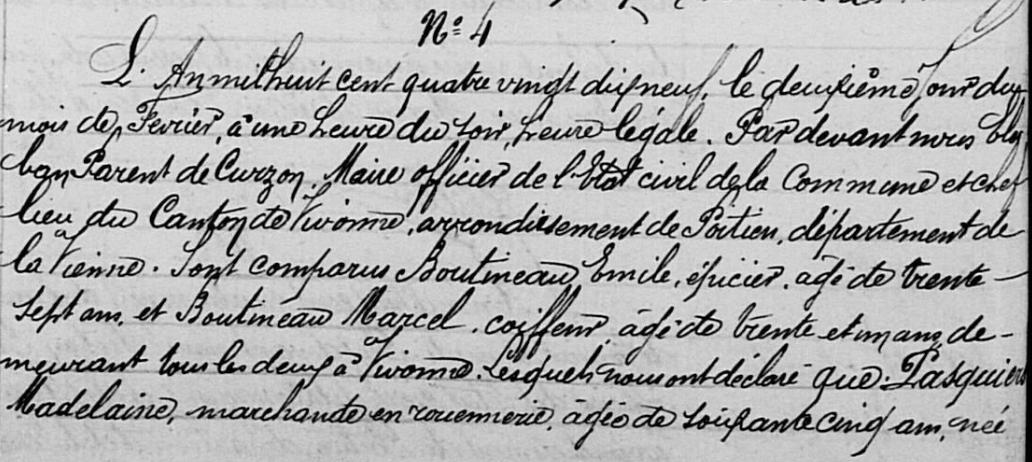 N° 4
L'An mil huit cent quatre vingt dix neuf, le deuxième jour du
mois de Fevrier, à une heure du soir, heure légale. Par devant nous
Parent de Curzon, Maire officier de l'Etat civil de la Commune et chef
lieu du Canton de Vivonne, arrondissement de Poitiers, département de
la Vienne. Sont comparus Boutineau Emile, épicier, âgé de trente
sept ans, et Boutineau Marcel, coiffeur, âgé de trente et un ans, de-
meurant tous les deux à Vivonne. Lesquels nous ont déclaré que Pasquier
Madelaine, marchande en rouennerie, âgée de soixante cinq ans, née